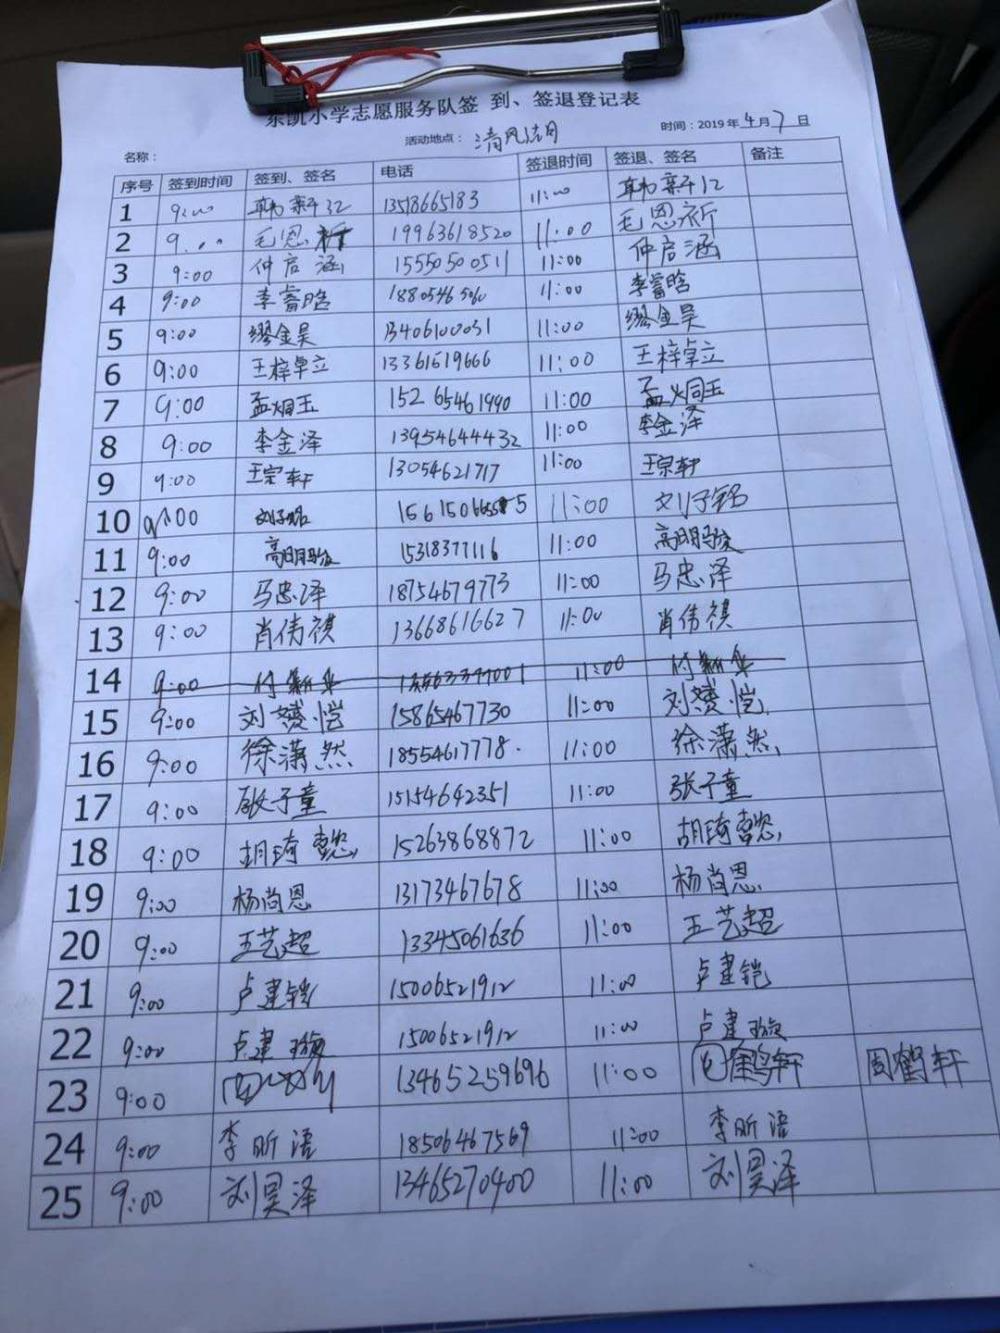 东凯小学志愿服务队签 到、签退登记表
名称： 活动地点： 清风湖 时间：2019年4月7日
序号 签到时间 签到、签名 电话 签退时间 签退、签名 备注
1 9:00 13518665183 11:00
2 9:00 毛恩祈 19963618520 11:00 毛恩祈
3 9:00 仲启涵 15550500511 11:00 仲启涵
4 9:00 李睿晗 11:00 李睿晗
5 9:00 缪金昊 13406100031 11:00 缪金昊
6 9:00 王梓卓立 13361519666 11:00 王梓卓立
7 9:00 孟炯玉 15265461990 11:00 孟炯玉
8 9:00 李金泽 13954644432 11:00 李金泽
9 9:00 王宗轩 13054621717 11:00 王宗轩
10 9:00 刘子铭 11:00 刘子铭
11 9:00 高明骏 15318377116 11:00 高明骏
12 9:00 马忠泽 18754679773 11:00 马忠泽
13 9:00 肖伟祺 13668616627 11:00 肖伟祺
14 9:00 11:00
15 9:00 刘赟恺 15865467730 11:00 刘赟恺
16 9:00 徐潇然 18554617778. 11:00 徐潇然
17 9:00 张子童 15154642351 11:00 张子童
18 9:00 胡琦 15263868872 11:00 胡琦
19 9:00 杨尚恩 13173467678 11:00 杨尚恩
20 9:00 王艺超 13345061636 11:00 王艺超
21 9:00 卢建铠 15006521912 11:00 卢建铠
22 9:00 卢建璇 15006521912 11:00 卢建璇
23 9:00 13465259696 11:00 周鹤轩 周鹤轩
24 9:00 李昕语 18506467569 11:00 李昕语
25 9:00 刘昊泽 13465270400 11:00 刘昊泽